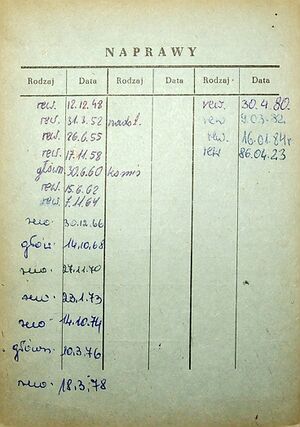 NAPRAWY
Rodzaj Data Rodzaj Data Rodzaj Data
rew. 12.12.48 rew. 30.4.80.
rew. 31.3.52 rew 9.03.82
rew. 26.6.55 rew. 16.01.84r
rew. 17.11.58 rew 86.04.23
główn. 30.6.60
rew. 15.6.62
rew. 7.11.64
30.12.66
głów. 14.10.68
27.11.70
23.1.73
14.10.74
główn. 10.3.76
18.3.78